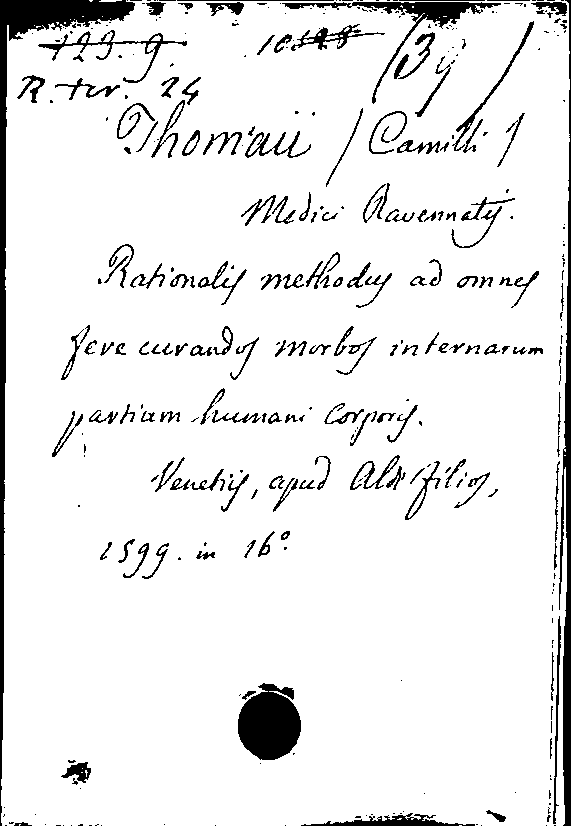 123.9. 10598 (39)
R. ter. 24
Thomaii (Camilli)
Medici Ravennatis.
Rationalis methodus ad omnes
fere curandos morbos internarum
partium humani corporis.
Venetiis, apud Aldi filios,
1599. in 16°.